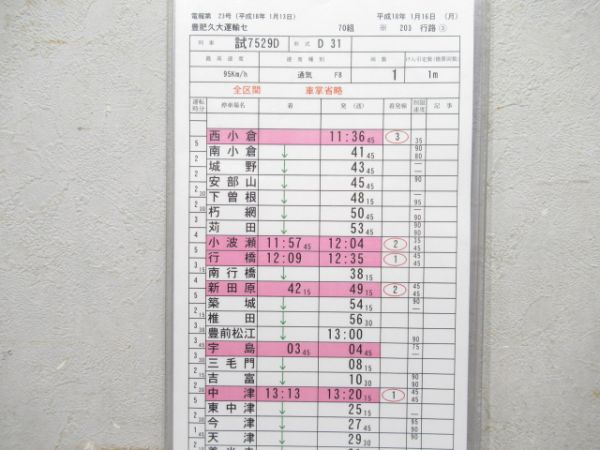 電報第 23号(平成18年 1月13日) 平成18年 1月16日 (月)
豊肥久大運輸セ 70組 ※ 203 行路
列車 試7529D 形式 D 31
最高速度 速度種別 両数
95Km/h 通気 F8 1 1m
全区間 車掌省略
運転時分 停車場名 着 発(通) 着発線 制限速度 記事
西小倉 11:36 45 3
5 35
南小倉 ↓ 41 45 90
2 80
城野 ↓ 43 45
2
安部山 ↓ 45 45 90
2 30
下曽根 ↓ 48 15
2 30 95
朽網 ↓ 50 45
3 90
苅田 ↓ 53 45
4 35
小波瀬 11:57 45 12:04 2 45
5 45
行橋 12:09 12:35 1 45
3 15
南行橋 ↓ 38 15
4
新田原 42 15 49 15 2 45
5 45
築城 ↓ 54 15 90
2 15
椎田 ↓ 56 30
3 30
豊前松江 ↓ 13:00
3 45 90
宇島 03 45 04 45 75
3 30
三毛門 ↓ 08 15
2 15
吉富 ↓ 10 30 90
2 30 90
中津 13:13 13:20 15 1 45
5 45
東中津 ↓ 25 15
2
今津 ↓ 27 15 95
2 15
天津 ↓ 29 30